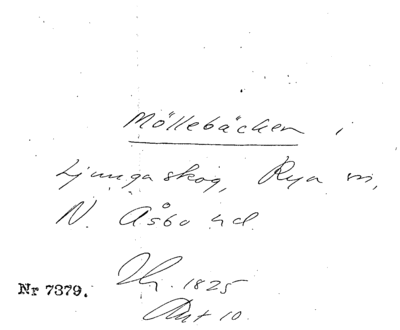 Möllebäcken i
Ljungaskog, Rya sn,
N. Åsbo hd.
1825
Nr 7379.
Ant 10.